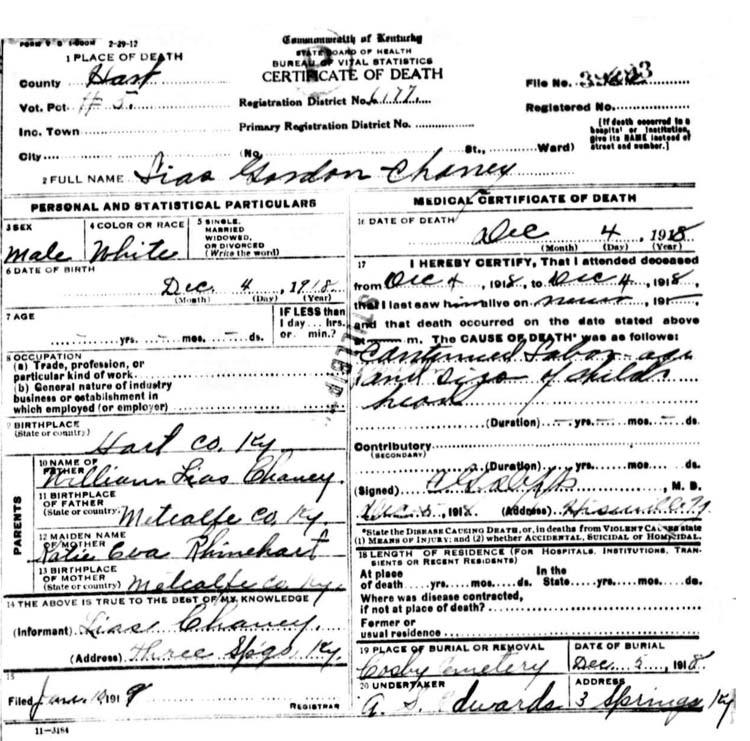 FORM V S 1-500M 2-29-12
Commonwealth of Kentucky
STATE BOARD OF HEALTH
BUREAU OF VITAL STATISTICS
CERTIFICATE OF DEATH
1 PLACE OF DEATH
County Hart
Vot. Pct # 5
Inc. Town
City
Registration District No. 6177
Primary Registration District No.
(No. St., Ward)
File No.
Registered No.
[If death occurred in a
hospital or institution,
give its NAME instead of
street and number.]
2 FULL NAME Lias Gordon Chaney
PERSONAL AND STATISTICAL PARTICULARS
3 SEX
Male
4 COLOR OR RACE
White
5 SINGLE,
MARRIED
WIDOWED,
OR DIVORCED
(Write the word)
6 DATE OF BIRTH
Dec. 4, 1918
(Month) (Day) (Year)
7 AGE
yrs. mos. ds.
IF LESS than
1 day hrs.
or min.?
8 OCCUPATION
(a) Trade, profession, or
particular kind of work
(b) General nature of industry
business or establishment in
which employed (or employer)
9 BIRTHPLACE
(State or country)
Hart Co. Ky.
PARENTS
10 NAME OF
FATHER
William Lias Chaney
11 BIRTHPLACE
OF FATHER
(State or country)
Metcalfe Co. Ky.
12 MAIDEN NAME
OF MOTHER
Katie Eva Rhinehart
13 BIRTHPLACE
OF MOTHER
(State or country) Metcalfe Co. Ky.
14 THE ABOVE IS TRUE TO THE BEST OF MY KNOWLEDGE
(Informant) Lias Chaney
(Address) Three Spgs. Ky.
15
Filed Jan. 1919
REGISTRAR
11-3184
MEDICAL CERTIFICATE OF DEATH
16 DATE OF DEATH
Dec 4, 1918
(Month) (Day) (Year)
17 I HEREBY CERTIFY, That I attended deceased
from Dec 4, 1918, to Dec 4, 1918,
that I last saw him alive on 191
and that death occurred on the date stated above
at m. The CAUSE OF DEATH* was as follows:
Continued Labor
and size of childs
head
(Duration) yrs. mos. ds.
Contributory
(SECONDARY)
(Duration) yrs. mos. ds.
(Signed) , M. D.
Dec. 1918 (Address)
STILLBIRTH
*State the DISEASE CAUSING DEATH, or, in deaths from VIOLENT CAUSES state
(1) MEANS OF INJURY; and (2) whether ACCIDENTAL, SUICIDAL OR HOMICIDAL.
18 LENGTH OF RESIDENCE (FOR HOSPITALS, INSTITUTIONS, TRAN-
SIENTS OR RECENT RESIDENTS)
At place In the
of death yrs. mos. ds. State yrs. mos. ds.
Where was disease contracted,
if not at place of death?
Former or
usual residence
19 PLACE OF BURIAL OR REMOVAL
Cosby Cemetery
DATE OF BURIAL
Dec. 5, 1918
20 UNDERTAKER
A. S. Edwards
ADDRESS
3 Springs Ky